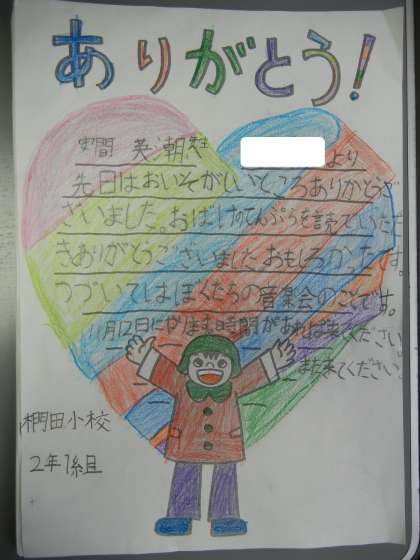 ありがとう！
英潮先生
より
先日はおいそがしいところありがとうご
ざいました。おばけのてんぷらを読でいただ
きありがとうございました。おもしろかったです。
つづいてはぼくたちの音楽会のことです。
11月12日にやります時間があれば来てください。
また来てください。
田小校
2年1組